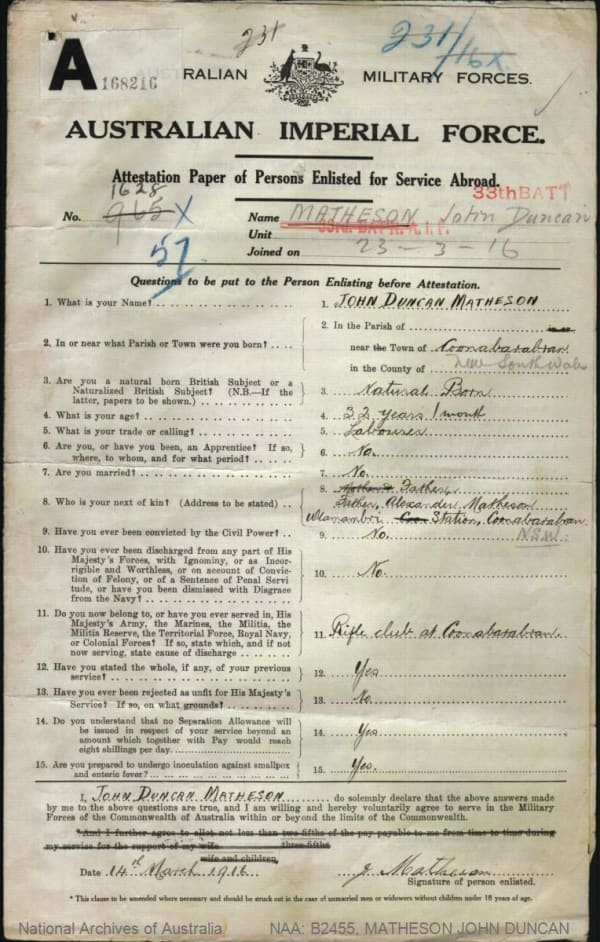 231
231/16X
A
168216
AUSTRALIAN MILITARY FORCES.
AUSTRALIAN IMPERIAL FORCE.
Attestation Paper of Persons Enlisted for Service Abroad.
33th BATT
1628
No. 965 X Name MATHESON John Duncan
57 Unit 33RD BATN. A.I.F.
Joined on 23-3-16
Questions to be put to the Person Enlisting before Attestation.
1. What is your Name? 1. JOHN DUNCAN MATHESON
2. In or near what Parish or Town were you born? 2. In the Parish of in or
near the Town of Coonabarabran
in the County of New South Wales
3. Are you a natural born British Subject or a
Naturalized British Subject? (N.B.—If the 3. Natural Born
latter, papers to be shown.)
4. What is your age? 4. 32 years 1 month
5. What is your trade or calling? 5. Labourer
6. Are you, or have you been, an Apprentice? If so,
where, to whom, and for what period? 6. No.
7. Are you married? 7. No.
8. Who is your next of kin? (Address to be stated) 8. Mother's Father
Father, Alexander Matheson
Station, Coonabarabran
N.S.W.
9. Have you ever been convicted by the Civil Power? 9. No.
10. Have you ever been discharged from any part of His
Majesty's Forces, with Ignominy, or as Incor-
rigible and Worthless, or on account of Convic-
tion of Felony, or of a Sentence of Penal Servi 10. No.
tude, or have you been Dismissed with Disgrace
from the Navy?
11. Do you now belong to, or have you ever served in, His
Majesty's Army, the Marines, the Militia, the
Militia Reserve, the Territorial Force, Royal Navy,
or Colonial Forces? If so, state which, and if not 11. Rifle club at Coonabarabran.
now serving, state cause of discharge
12. Have you stated the whole, if any, of your previous
service? 12. Yes
13. Have you ever been rejected as unfit for His Majesty's
Service? If so, on what grounds? 13. No.
14. Do you understand that no Separation Allowance will
be issued in respect of your service beyond an
amount which together with Pay would reach 14. Yes
eight shillings per day.
15. Are you prepared to undergo inoculation against smallpox
and enteric fever? 15. Yes.
I, JOHN DUNCAN MATHESON do solemnly declare that the above answers made
by me to the above questions are true, and I am willing and hereby voluntarily agree to serve in the Military
Forces of the Commonwealth of Australia within or beyond the limits of the Commonwealth.
*And I further agree to allot not less than two-fifths of the pay payable to me from time to time during
my service for the support of my wife three-fifths
wife and children.
Date 14th March 1916 J. Matheson
Signature of person enlisted.
* This clause to be amended where necessary and should be struck out in the case of unmarried men or widowers without children under 18 years of age.
National Archives of Australia NAA: B2455, MATHESON JOHN DUNCAN